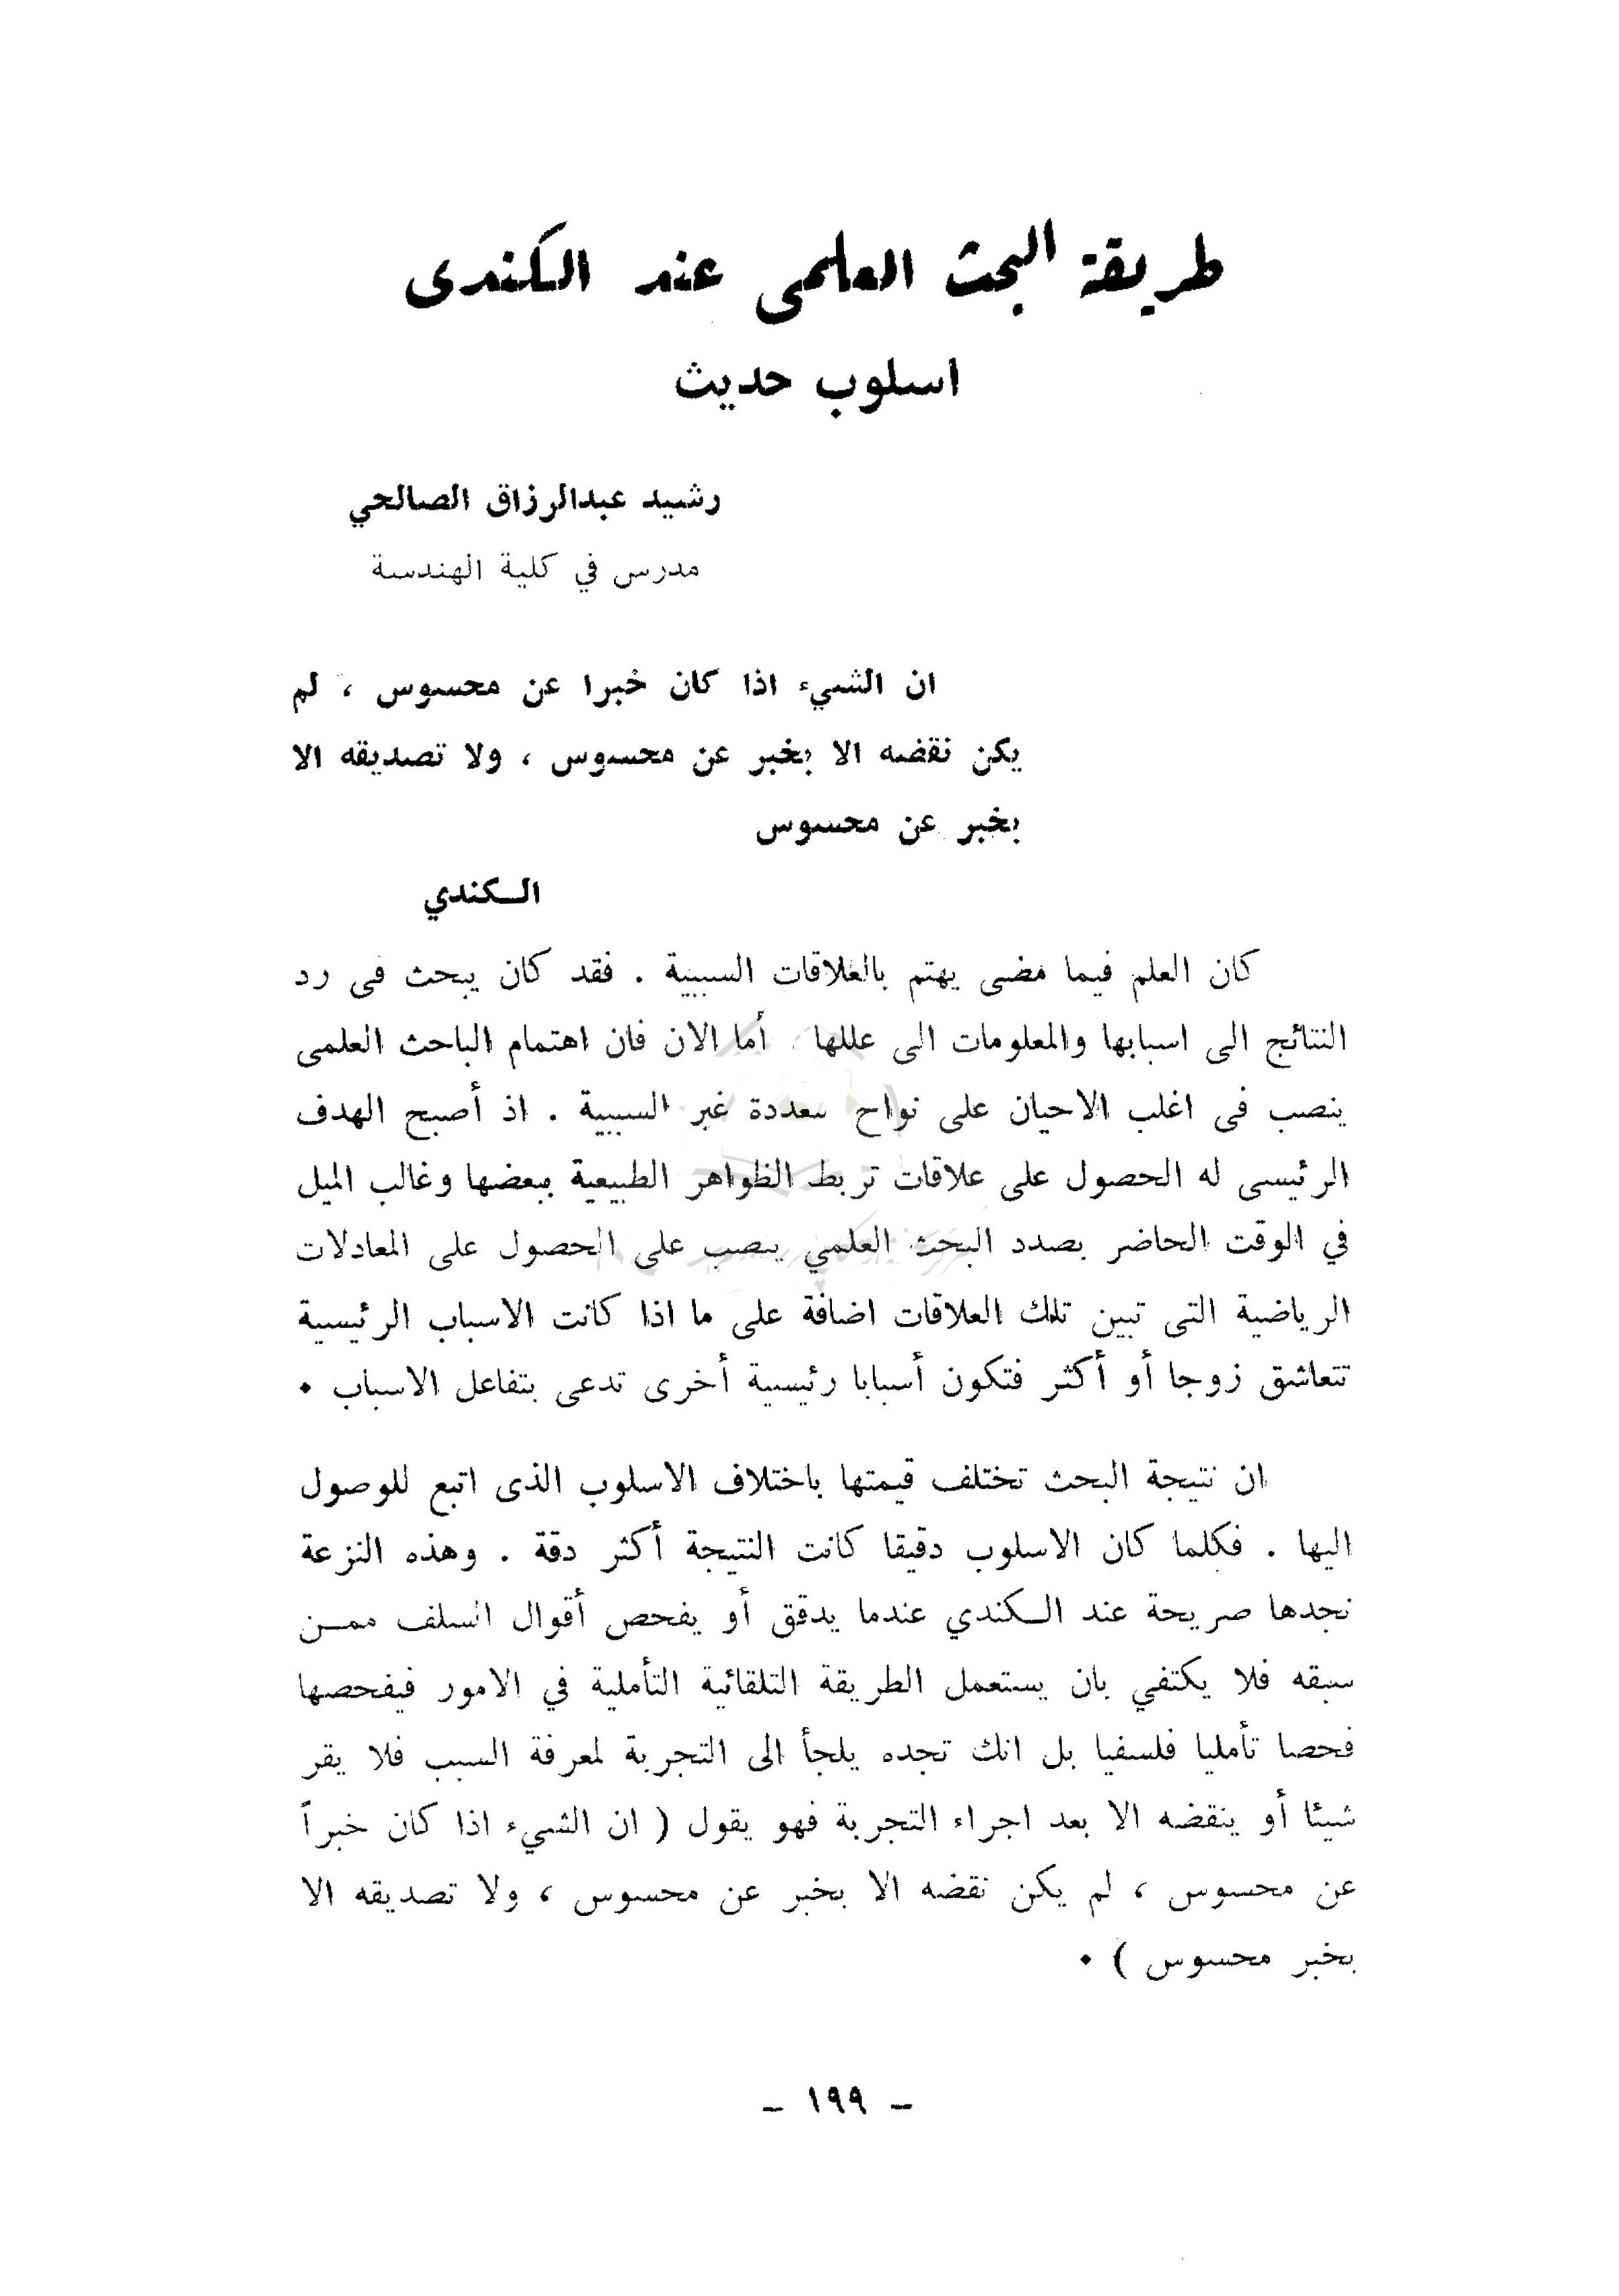 طريقة البحث العلمى عند الكندى
اسلوب حديث
رشيد عبدالرزاق الصالحي
مدرس في كلية الهندسة
ان الشيء اذا كان خبرا عن محسوس ، لم
يكن نقضه الا بخبر عن محسوس ، ولا تصديقه الا
بخبر عن محسوس
الـكندي
كان العلم فيما مضى يهتم بالعلاقات السببية . فقد كان يبحث فى رد
النتائج الى اسبابها والمعلومات الى عللها . أما الان فان اهتمام الباحث العلمى
ينصب فى اغلب الاحيان على نواح متعددة غير السببية . اذ أصبح الهدف
الرئيسى له الحصول على علاقات تربط الظواهر الطبيعية ببعضها وغالب الميل
في الوقت الحاضر بصدد البحث العلمي ينصب على الحصول على المعادلات
الرياضية التى تبين تلك العلاقات اضافة على ما اذا كانت الاسباب الرئيسية
تتعاشق زوجا أو أكثر فتكون أسبابا رئيسية أخرى تدعى بتفاعل الاسباب ٠
ان نتيجة البحث تختلف قيمتها باختلاف الاسلوب الذى اتبع للوصول
اليها . فكلما كان الاسلوب دقيقا كانت النتيجة أكثر دقة . وهذه النزعة
نجدها صريحة عند الـكندي عندما يدقق أو يفحص أقوال السلف ممـن
سبقه فلا يكتفي بان يستعمل الطريقة التلقائية التأملية في الامور فيفحصها
فحصا تأمليا فلسفيا بل انك تجده يلجأ الى التجربة لمعرفة السبب فلا يقر
شيئا أو ينقضه الا بعد اجراء التجربة فهو يقول ( ان الشيء اذا كان خبراً
عن محسوس ، لم يكن نقضه الا بخبر عن محسوس ، ولا تصديقه الا
بخبر محسوس ) ٠
- ١٩٩ -